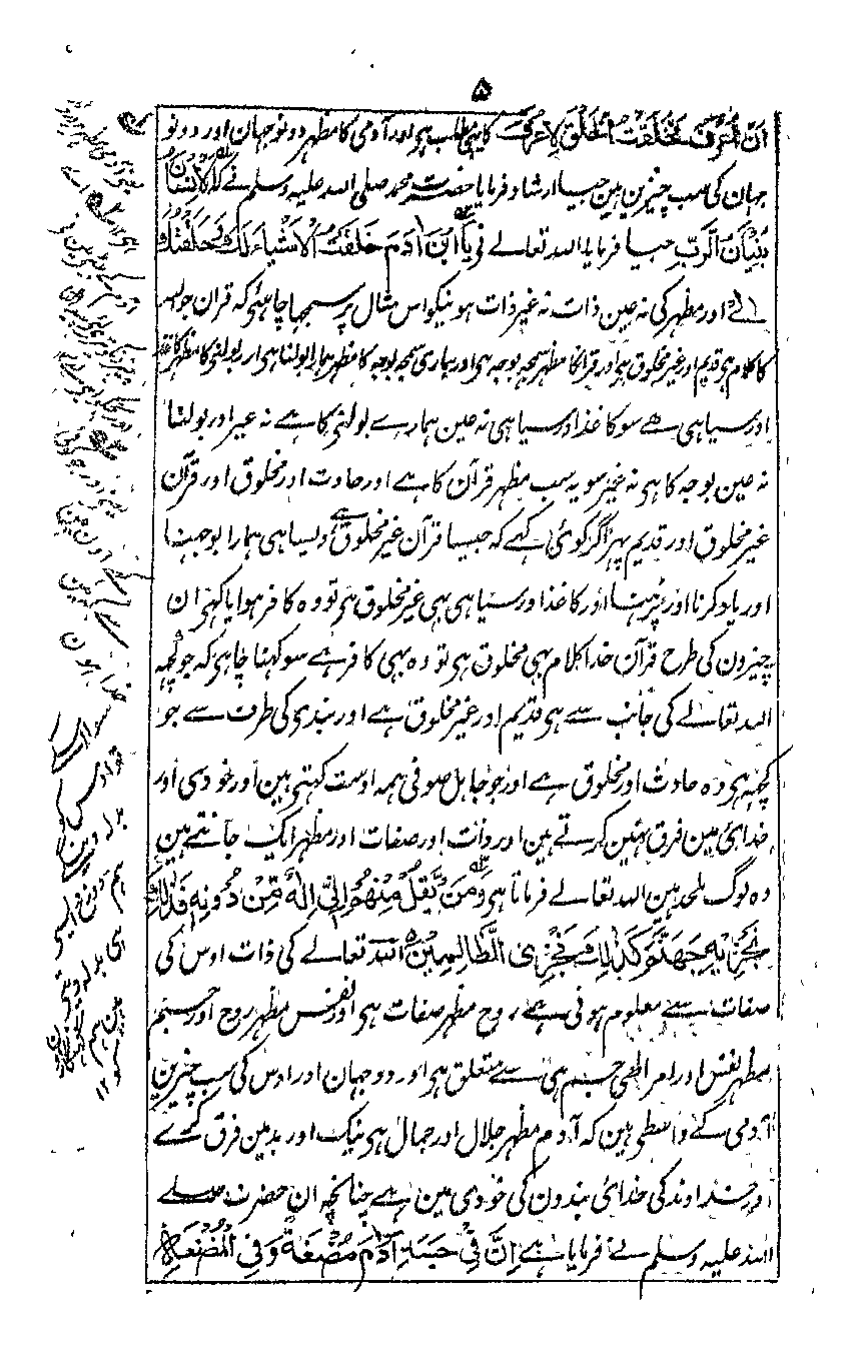 ۵
اَنْ اُعْرَفَ فَخَلَقْتُ الْخَلْقَ لِاُعْرَفَ کا یہی مطلب ہی اور آدمی کا مظہر دونو جہان اور دونو
جہان کی سب چیزین ہین جیسا ارشاد فرمایا حضرت محمد صلی اللہ علیہ وسلم نے کہ اَلْاِنْسَانُ
بُنْیَانُ الرَّبِّ جیسا فرمایا اللہ تعالے نی یَا ابْنَ اٰدَمَ خَلَقْتُ الْاَشْیَاءَ لَكَ وَخَلَقْتُكَ
لِیْ اور مظہر کی نہ عین ذات نہ غیر ذات ہونیکو اس مثال پر سمجھا چاہئی کہ قران جو اللہ
کا کلام ہی قدیم اور غیر مخلوق ہی اور قرانکا مظہر سمجھ بوجھ ہی اور ہماری سمجھ بوجھ کا مظہر ہمارا بولنا ہی اور بولنی کا مظہر کاغذ
اور سیاہی ہے سو کاغذ اور سیاہی نہ عین ہمارے بولنی کا ہے نہ غیر اور بولنا
نہ عین بوجھ کا ہی نہ غیر سو یہ سب مظہر قرآن کا ہے اور حادث اور مخلوق اور قرآن
غیر مخلوق اور قدیم پہر اگر کوئی کہے کہ جیسا قرآن غیر مخلوق ہے ویسا ہی ہمارا بوجھنا
اور یاد کرنا اور پڑہنا اور کاغذ اور سیاہی بہی غیر مخلوق ہی تو وہ کافر ہوا یا کہی ان
چیزون کی طرح قرآن خدا کلام بہی مخلوق ہی تو وہ بہی کافر ہے سو کہنا چاہی کہ جو کچھ
اللہ تعالے کی جانب سے ہی قدیم اور غیر مخلوق ہے اور بندی کی طرف سے جو
کچھ ہی وہ حادث اور مخلوق ہے اور جو جاہل صوفی ہمہ اوست کہتی ہین اور خودی اور
خدائی مین فرق نہین کرتے ہین اور ذات اور صفات اور مظہر ایک جانتے ہین
وہ لوگ ملحد ہین اللہ تعالے فرماتا ہی وَمَنْ یَّقُلْ مِنْهُمْ اِنِّیْ اِلٰهٌ مِّنْ دُوْنِهٖ فَذٰلِكَ
نَجْزِیْهِ جَهَنَّمَ كَذٰلِكَ نَجْزِی الظَّالِمِیْنَ اللہ تعالے کی ذات اوس کی
صفات سے معلوم ہوئی ہے روح مظہر صفات ہی اور نفس مظہر روح اور جسم
مظہر نفس اور امر الٰہی جسم ہی سے متعلق ہی اور دو جہان اور اوس کی سب چیزین
آدمی کے واسطی ہین کہ آدم مظہر جلال اور جمال ہی نیک اور بد مین فرق کرے
اور خداوند کی خدائی بندون کی خودی مین ہے چنانچہ ان حضرت صلے
اللہ علیہ وسلم نے فرمایا ہے اِنَّ فِیْ جَسَدِ اٰدَمَ مُضْغَةً وَفِی الْمُضْغَةِ
خدا ہون
سو اسے
بدلہ دین
ہم دوزخ ایسی
ہی بدلہ دیتی
ہین ہم
۱۲